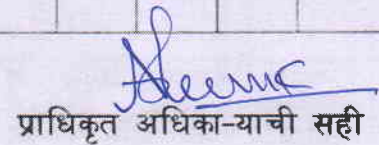 प्राधिकृत अधिका-याची सही